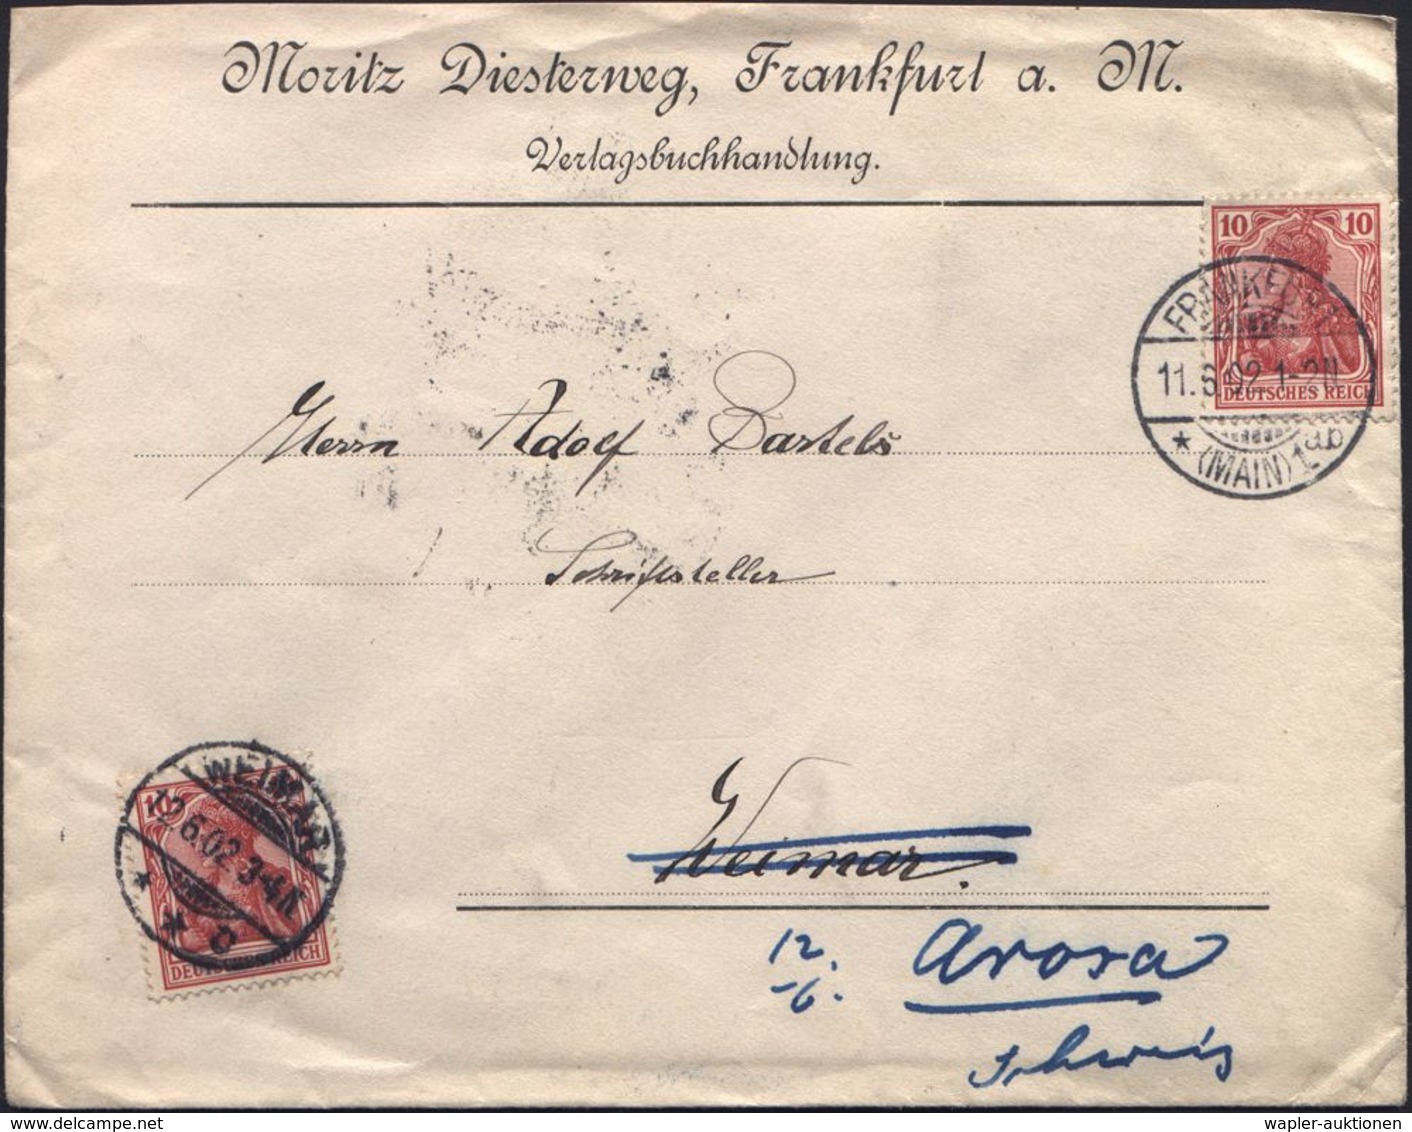 Moritz Diesterweg, Frankfurt a. M.
Verlagsbuchhandlung.
10 10
DEUTSCHES REICH
FRANKFURT
11.6.02.1-2N
* (MAIN) 1 ab
Herrn Adolf Bartels
Schriftsteller
Weimar.
12.
6.
Arosa
Schweiz
10
DEUTSCHES REICH
WEIMAR
12.6.02.3-4N
* * c
wapler-auktionen